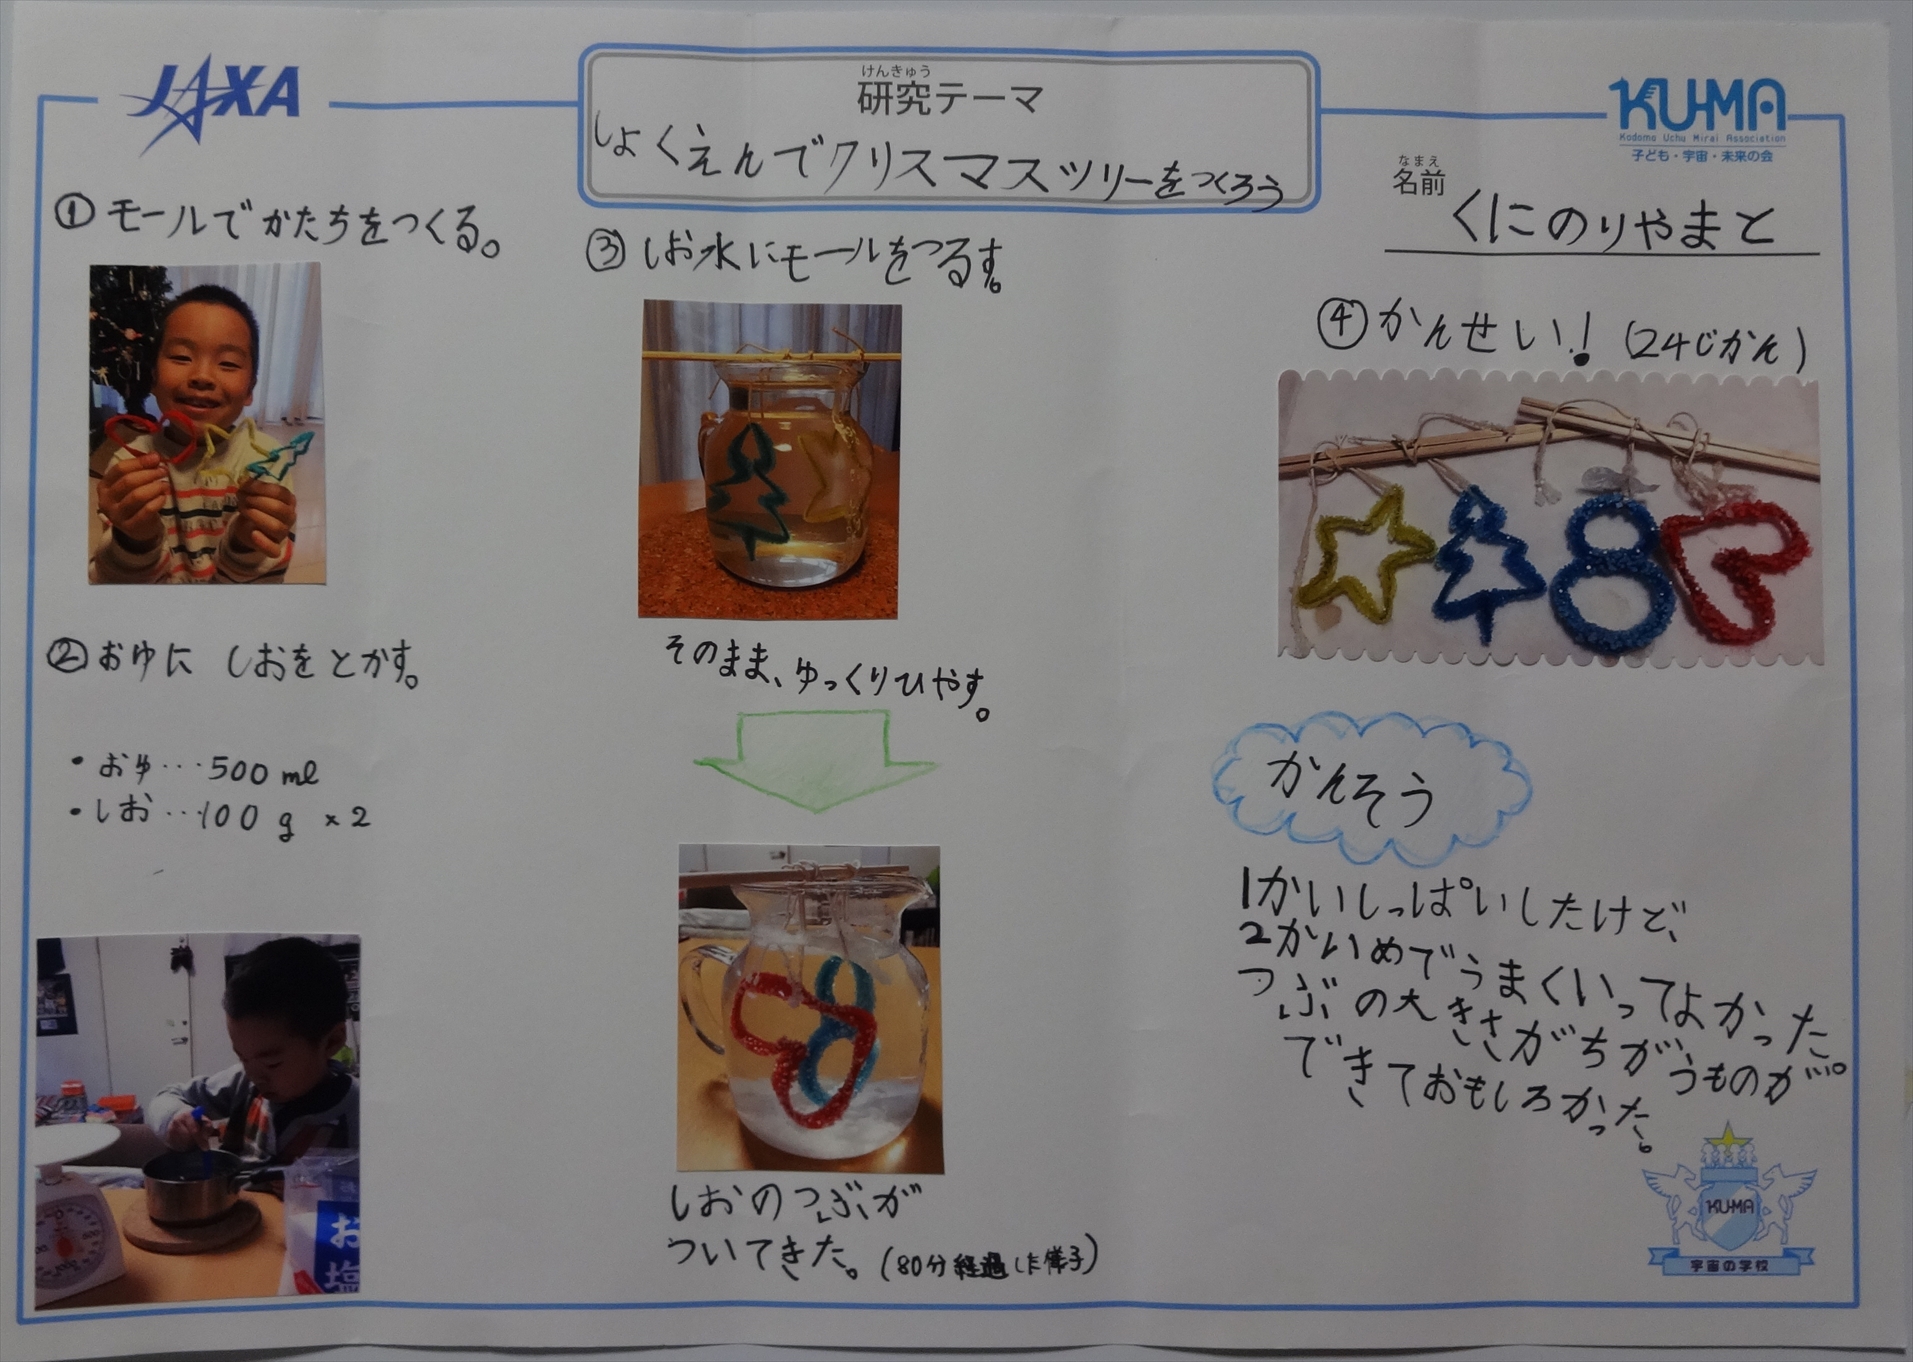 JAXA
けんきゅう
研究テーマ
しょくえんでクリスマスツリーをつくろう
KU-MA
Kodomo Uchu Mirai Association
子ども・宇宙・未来の会
なまえ
名前
くにのりやまと
① モールでかたちをつくる。
② おゆに しおをとかす。
・おゆ…500 ml
・しお…100 g ×2
お
塩
③ しお水にモールをつるす。
そのまま、ゆっくりひやす。
しおのつぶが
ついてきた。(80分経過した様子)
④ かんせい!(24じかん)
かんそう
1かいしっぱいしたけど、
2かいめでうまくいってよかった。
つぶの大きさがちがうものが
できておもしろかった。
KU-MA
宇宙の学校